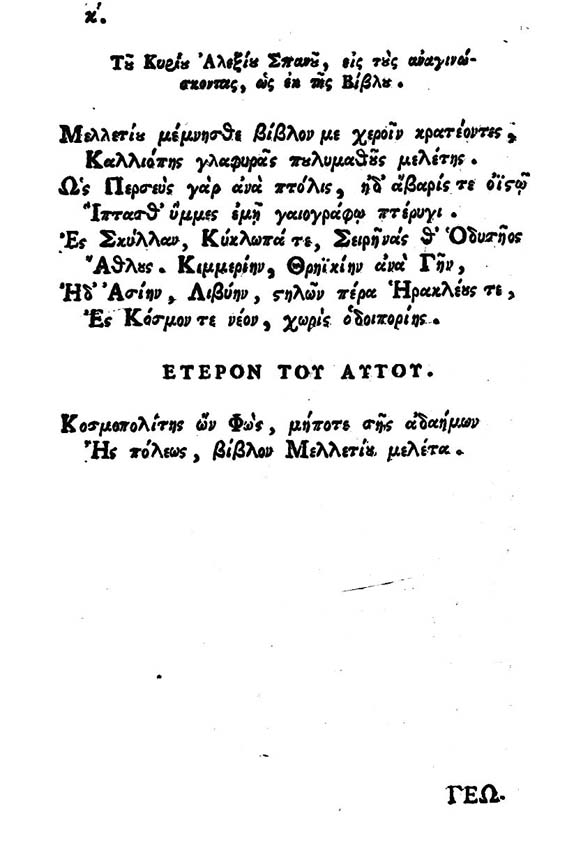 κ'.
Τοῦ Κυρίου Ἀλεξίου Σπανοῦ, εἰς τοὺς ἀναγινώ-
σκοντας, ὡς ἐκ τῆς Βίβλου.
Μελλετίου μέμνησθε βίβλον με χεροῖν κρατέοντες,
Καλλιόπης γλαφυρᾶς πουλυμαθοῦς μελέτης.
Ὡς Περσεὺς γὰρ ἀνὰ πτόλις, ἠδ' ἄβαρίς τε ὀϊστῷ
Ἵπτασθ' ὕμμες ἐμῇ γαιογράφῳ πτέρυγι.
Ἐς Σκύλλαν, Κύκλωπά τε, Σειρῆνάς θ' Ὀδυσῆος
Ἄθλους. Κιμμερίην, Θρηϊκίην ἀνὰ Γῆν,
Ἠδ' Ἀσίην, Λιβύην, στηλῶν πέρα Ἡρακλέους τε,
Ἐς Κόσμον τε νέον, χωρὶς ὁδοιπορίης.
ΕΤΕΡΟΝ ΤΟΥ ΑΥΤΟΥ.
Κοσμοπολίτης ὢν Φὼς, μήποτε σῆς ἀδαήμων
Ἧς πόλεως, βίβλον Μελλετίου μελέτα.
ΓΕΩ.